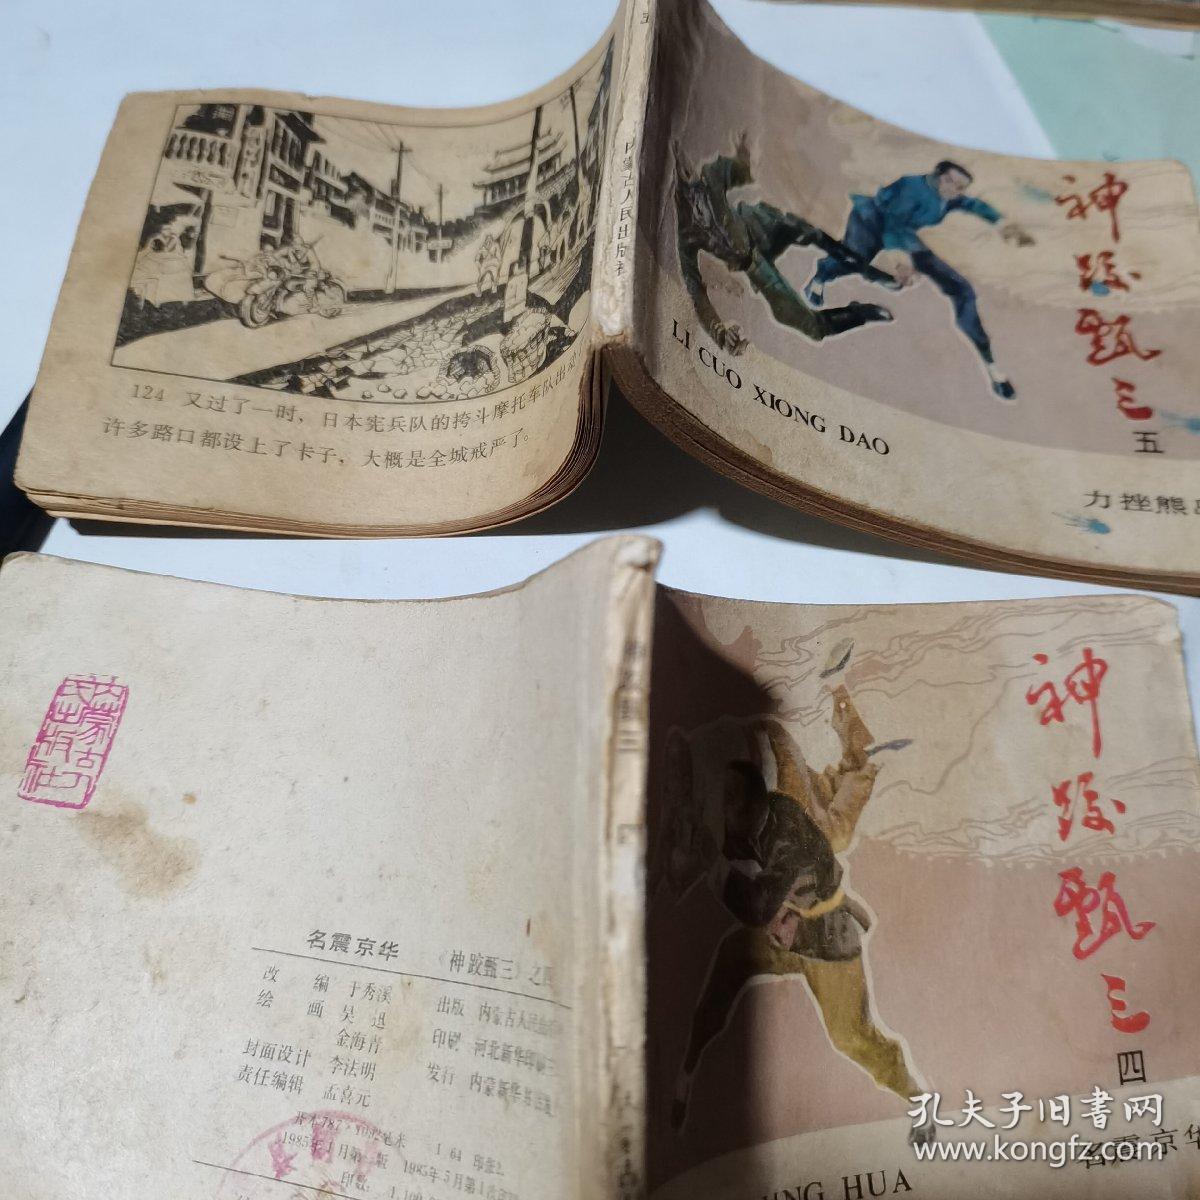 124 又过了一时，日本宪兵队的挎斗摩托车队出
许多路口都设上了卡子，大概是全城戒严了。
五
内蒙古人民出版社
神跤甄三
五
LI CUO XIONG DAO
力挫熊
内蒙古人民出版社
神跤甄三
四
名震京华 《神跤甄三》之四
改编 于秀溪
绘画 吴迅
金海青
封面设计 李法明
责任编辑 孟喜元
出版 内蒙古人民
印刷 河北新华印刷三
发行 内蒙新华书店
开本787×1092毫米 1 64 印张2
1985年1月第一版 1985年5月第1次
印数: 1,100
神跤甄三
四
名震京华
HUA
孔夫子旧书网
www.kongfz.com